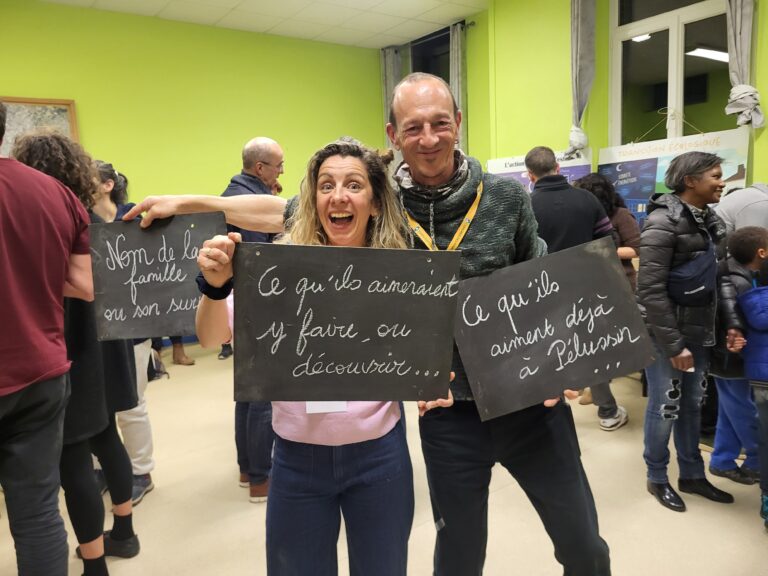 Nom de la
famille
ou son surn
Ce qu'ils aimeraient
y faire, ou
découvrir...
Ce qu'ils
aiment déjà
à Pélussin
...
L'action
TRANSITION